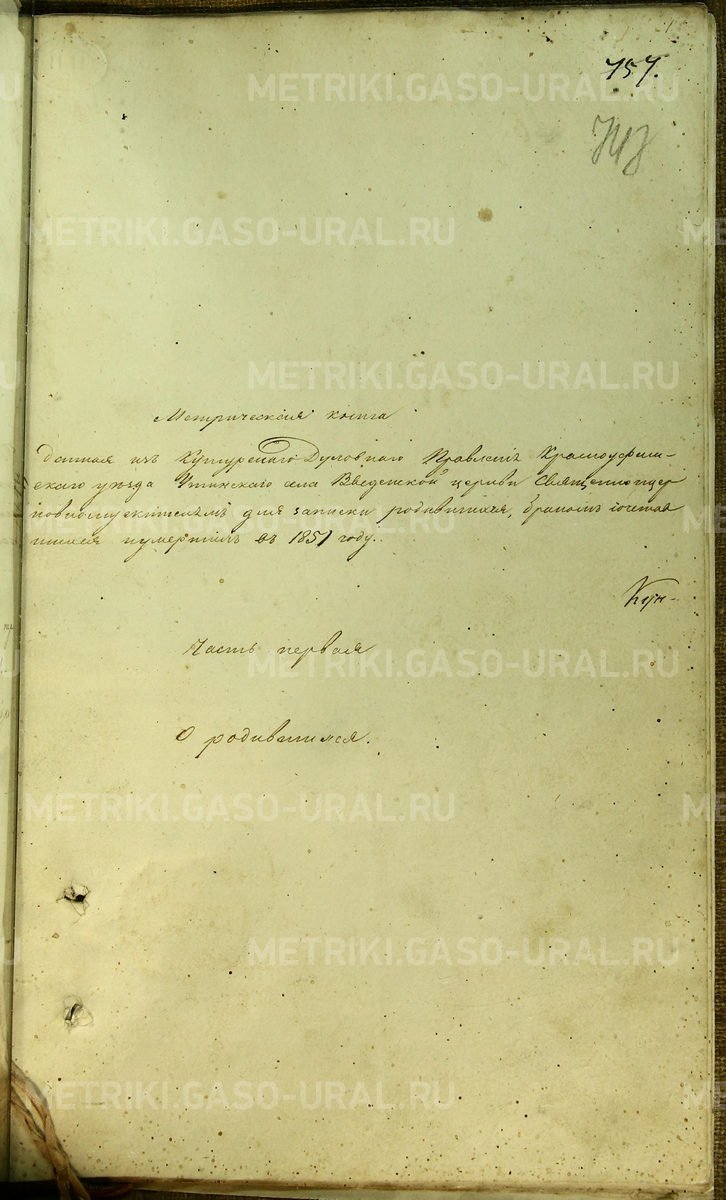 757.
743
Метрическая книга
данная изъ Кунгурскаго Духовнаго Правленія Красноуфим-
скаго уѣзда Уткинскаго села Введенской церкви Священноцер
ковнослужителямъ для записки родившихся, бракомъ сочетав
шихся и умершихъ въ 1851 году.
Часть первая
О родившихся.
METRIKI.GASO-URAL.RU